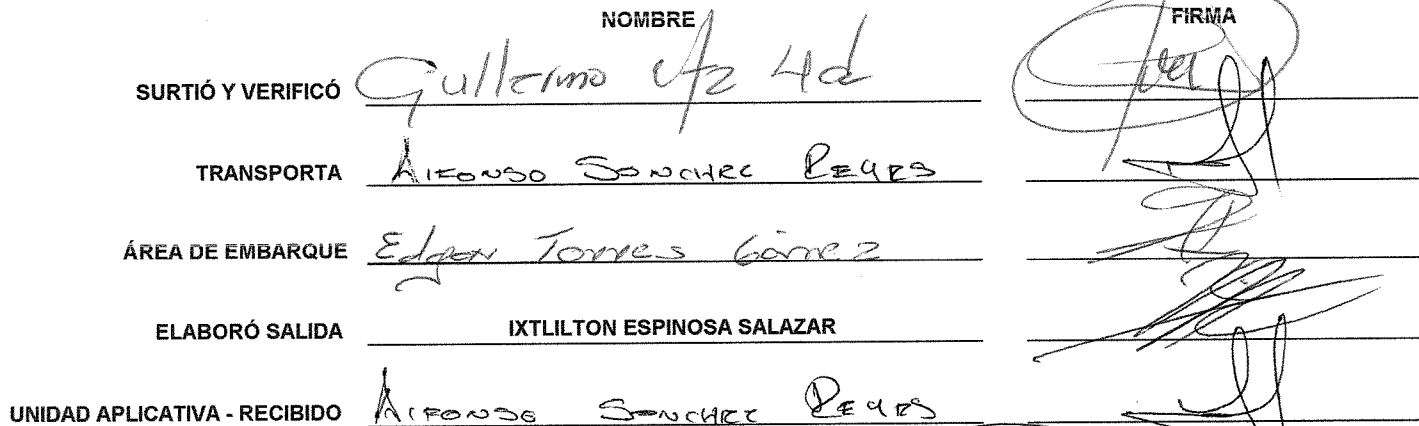 NOMBRE FIRMA
SURTIÓ Y VERIFICÓ Guillermo
TRANSPORTA Alfonso Sanchez Reyes
ÁREA DE EMBARQUE Edgar Torres Gómez
ELABORÓ SALIDA IXTLILTON ESPINOSA SALAZAR
UNIDAD APLICATIVA - RECIBIDO Alfonso Sanchez Reyes